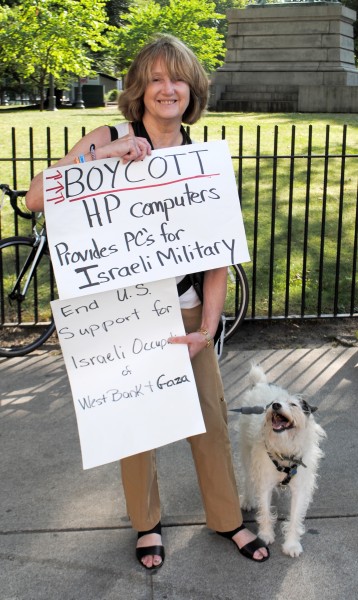 BOYCOTT
HP computers
Provides PC's for
Israeli Military
End U.S.
Support for
Israeli Occupation
of
West Bank + Gaza